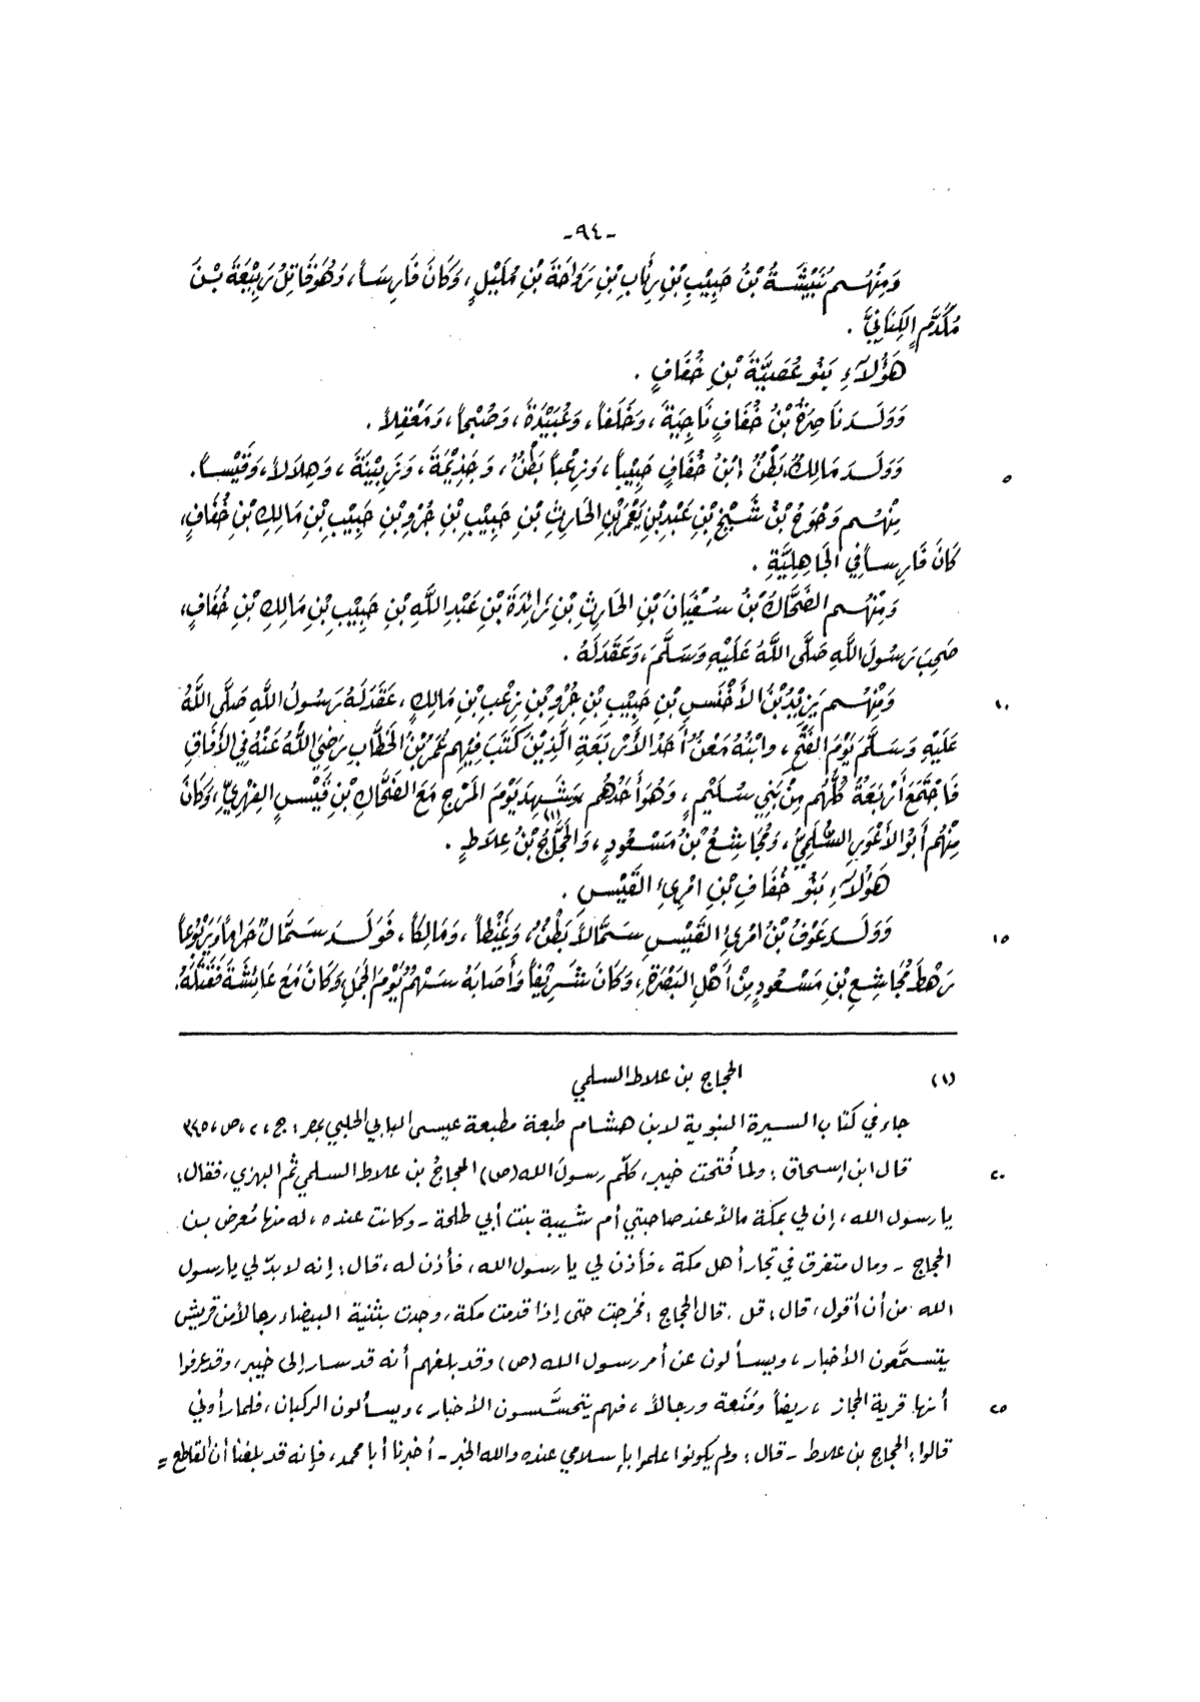 -٩٤-
وَمِنْهُم نُبَيْشَةُ بْنُ حَبِيْبِ بْنِ رِئَابِ بْنِ رَوَاحَةَ بْنِ مُلَيْلٍ، وَكَانَ فَارِسَاً، وَهُوَ قَاتِلُ رَبِيْعَةَ بْنَ
مُكَدَّمٍ الكِنَانِيَّ .
هَؤُلَاَءِ بَنُو عُصَيَّةَ بْنِ خُفَافٍ .
وَوَلَدَ نَاصِرَةُ بْنُ خُفَافٍ نَاجِيَةَ، وَخَلَفاً، وَعُبَيْدَةَ، وَصُبْحاً، وَمَعْقِلاً.
٥ وَوَلَدَ مَالِكُ بَطْنٌ ابْنُ خُفَافٍ حَبِيْباً، وَزِعْباً بَطْنٌ، وَجَذِيْمَةَ، وَزَبِيْنَةَ، وَهِلَالاً، وَقَيْساً.
مِنْهُم وَحْوَحُ بْنُ شَيْخِ بْنِ عَبْدِ بْنِ يَعْمَرَ بْنِ الحَارِثِ بْنِ حَبِيْبِ بْنِ جُرْوِ بْنِ حَبِيْبِ بْنِ مَالِكِ بْنِ خُفَافٍ،
كَانَ فَارِساً فِي الجَاهِلِيَّةِ .
وَمِنْهُم الضَّحَّاكُ بْنُ سُفْيَانَ بْنِ الحَارِثِ بْنِ زَائِدَةَ بْنِ عَبْدِ اللَّهِ بْنِ حَبِيْبِ بْنِ مَالِكِ بْنِ خُفَافٍ،
صَحِبَ رَسُولَ اللَّهِ صَلَّى اللَّهُ عَلَيْهِ وَسَلَّمَ، وَعَقَدَ لَهُ .
١٠ وَمِنْهُم يَزِيْدُ بْنُ الأَخْنَسِ بْنِ حَبِيْبِ بْنِ جُرْوِ بْنِ زِعْبِ بْنِ مَالِكٍ، عَقَدَ لَهُ رَسُولُ اللَّهِ صَلَّى اللَّهُ
عَلَيْهِ وَسَلَّمَ يَوْمَ الفَتْحِ، وابْنُهُ مَعْنٌ أَحَدُ الأَرْبَعَةِ الَّذِيْنَ كَتَبَ فِيْهِم عُمَرُ بْنُ الخَطَّابِ رَضِيَ اللَّهُ عَنْهُ فِي الآفَاقِ
فَاجْتَمَعَ أَرْبَعَةٌ كُلُّهُم مِنْ بَنِي سُلَيْمٍ، وَهُوَ أَحَدُهُم وَشَهِدَ يَوْمَ المَرْجِ مَعَ الضَّحَّاكِ بْنِ قَيْسٍ الفِهْرِيِّ، وَكَانَ
مِنْهُم أَبُو الأَعْوَرِ السُّلَمِيُّ، وَمُجَاشِعُ بْنُ مَسْعُودٍ، وَالحَجَّاجُ بْنُ عِلَاطٍ(١) .
هَؤُلَاَءِ بَنُو خُفَافِ بْنِ امْرِئِ القَيْسِ .
١٥ وَوَلَدَ عَوْفُ بْنُ امْرِئِ القَيْسِ سَمَّالاً بَطْنٌ، وَغَيْظاً، وَمَالِكاً، فَوَلَدَ سَمَّالٌ حَرَاماً، وَيَرْبُوعاً
رَهْطَ مُجَاشِعِ بْنِ مَسْعُودٍ مِنْ أَهْلِ البَصْرَةِ، وَكَانَ شَرِيْفاً وَأَصَابَهُ سَهْمٌ يَوْمَ الجَمَلِ وَكَانَ مَعَ عَائِشَةَ فَقَتَلَهُ.
(١) الحجاج بن علاط السلمي
جاء في كتاب السيرة النبوية لابن هشام طبعة مطبعة عيسى البابي الحلبي بمصر: ج، ٢، ص، ٣٤٥
٢٠ قال ابن إسحاق: ولما فُتحت خيبر، كلّم رسولَ الله (ص) الحجاجُ بن علاط السلمي ثم البهزي، فقال:
يا رسول الله، إن لي بمكة مالاً عند صاحبتي أم شيبة بنت أبي طلحة - وكانت عنده، له منها مُعرض بن
الحجاج - ومال متفرق في تجار أهل مكة، فأذن لي يا رسول الله، فأذن له، قال: إنه لا بدّ لي يا رسول
الله من أن أقول، قال: قل. قال الحجاج: فخرجت حتى إذا قدمت مكة، وجدت بثنية البيضاء رجالاً من قريش
يتسمَّعون الأخبار، ويسألون عن أمر رسول الله (ص) وقد بلغهم أنه قد سار إلى خيبر، وقد عرفوا
٢٥ أنها قرية الحجاز، ريفاً ومَنَعة ورجالاً، فهم يتحسَّسون الأخبار، ويسألون الركبان، فلما رأوني
قالوا: الحجاج بن علاط - قال: ولم يكونوا علموا بإسلامي عنده والله الخبر - أخبرنا أبا محمد، فإنه قد بلغنا أن القاطع =